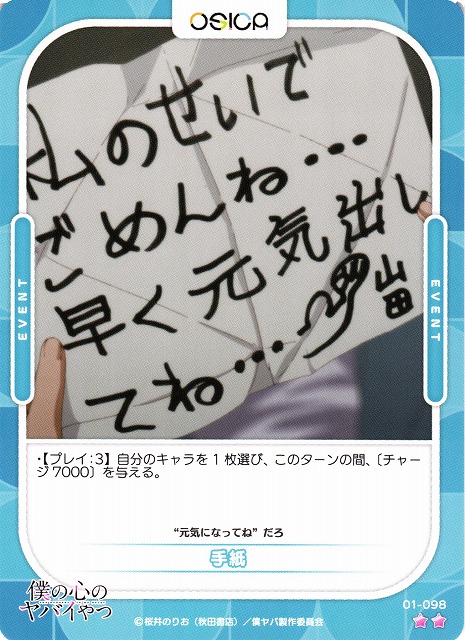 OSICA
私のせいで
ごめんね…
早く元気出し
てね…
山田
EVENT
EVENT
・【プレイ:3】自分のキャラを1枚選び、このターンの間、〔チャー
ジ7000〕を与える。
“元気になってね”だろ
手紙
僕の心の
ヤバイやつ
01-098
★★
©桜井のりお（秋田書店）／僕ヤバ製作委員会